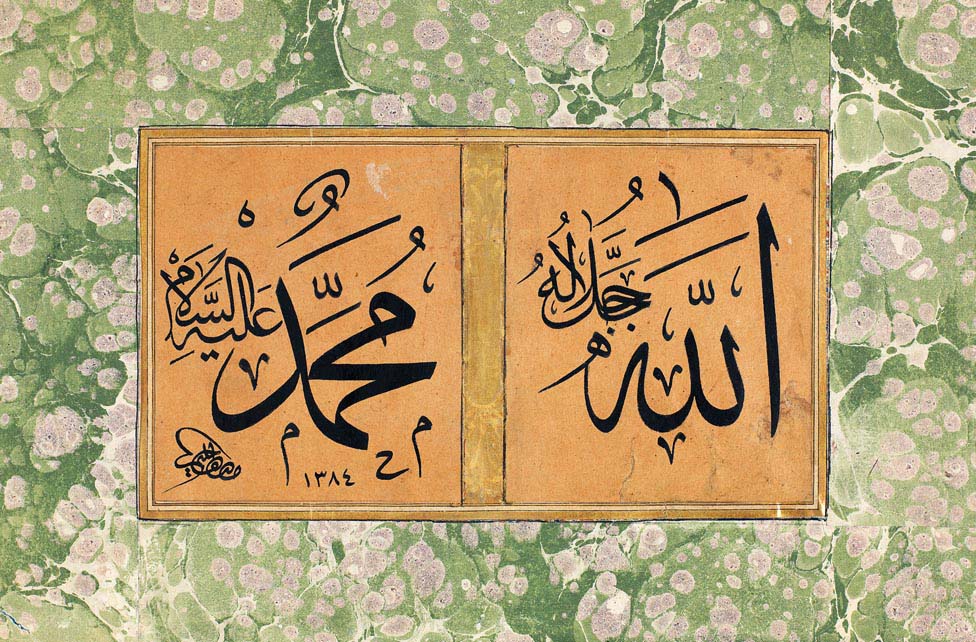 اللّٰه
جَلَّ جَلَالُهُ
مُحَمَّد
عَلَيْهِ السَّلَامُ
١٣٨٤